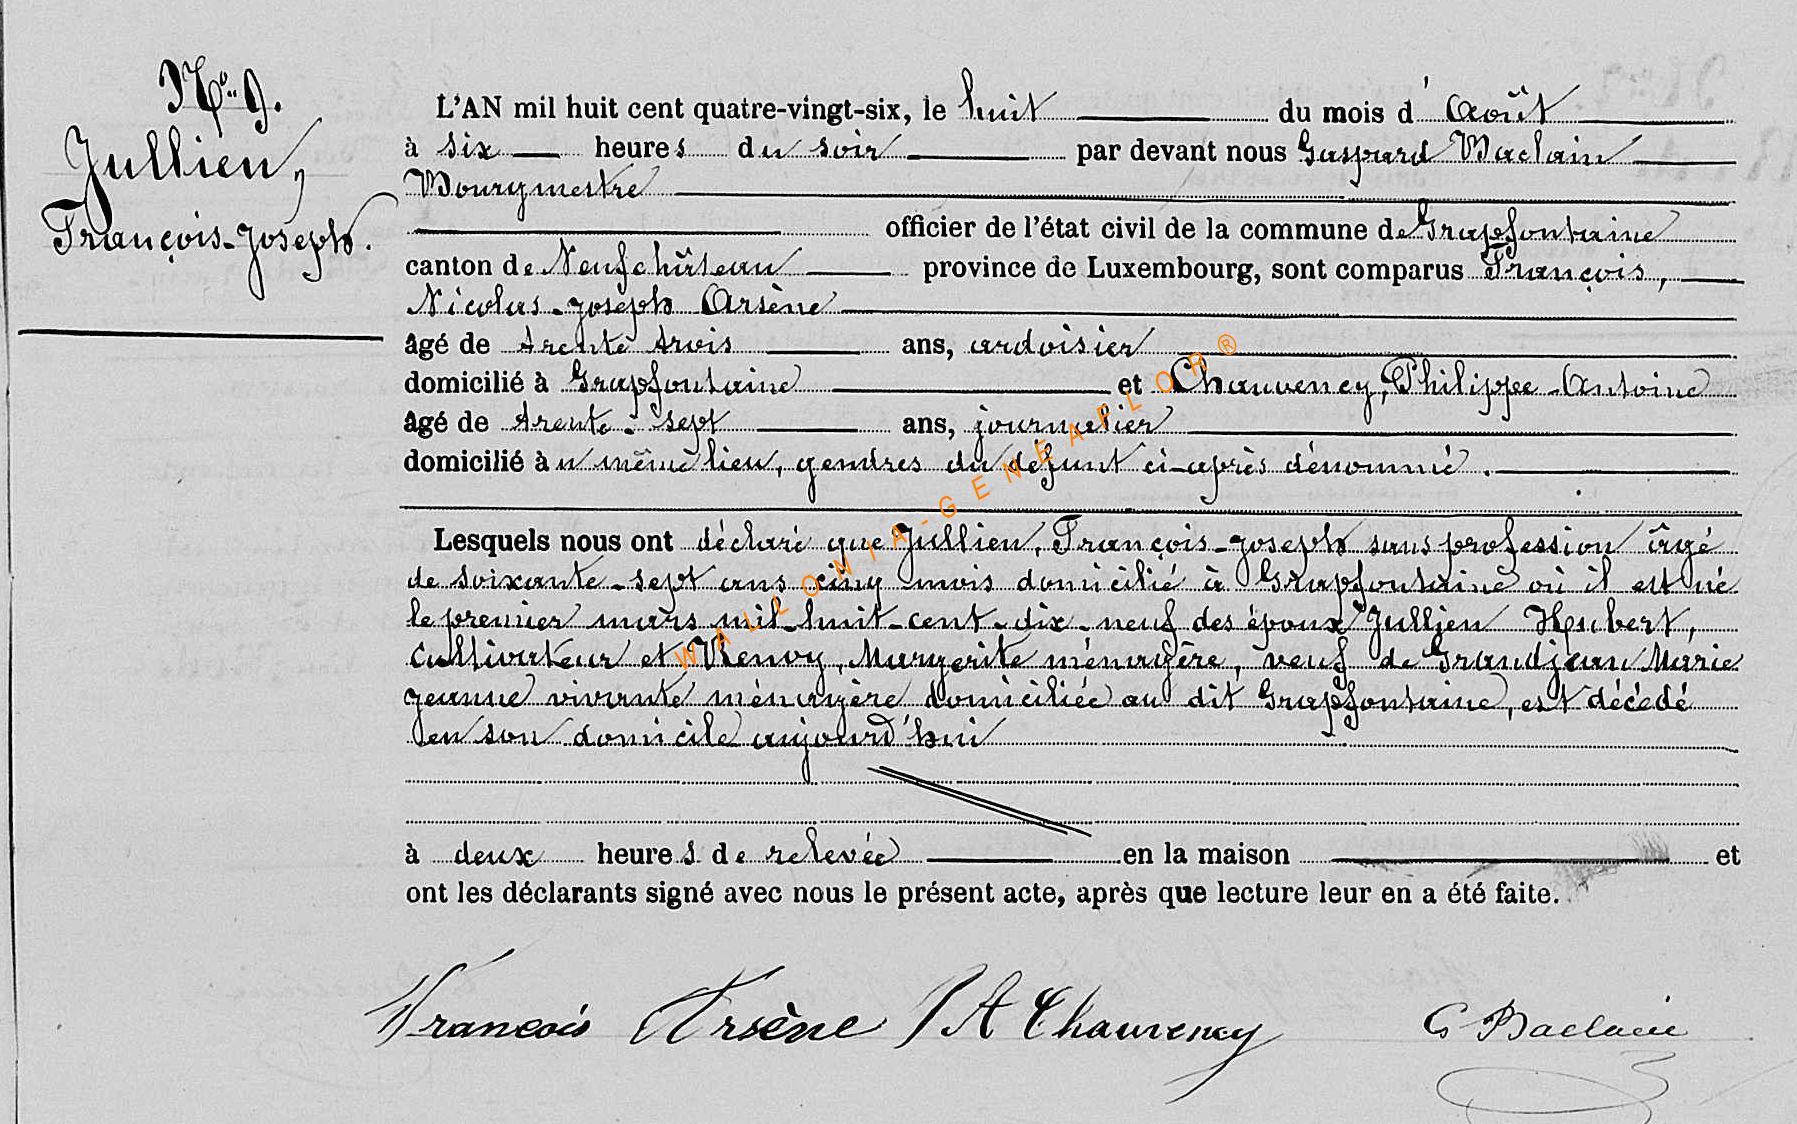 No 9.
Jullien,
François-Joseph.
L'AN mil huit cent quatre-vingt-six, le huit du mois d'Août
à six heures du soir par devant nous Gaspard Baclain
Bourgmestre
officier de l'état civil de la commune de Grapfontaine
canton de Neufchâteau province de Luxembourg, sont comparus François,
Nicolas-Joseph Arsène
âgé de trente trois ans, ardoisier
domicilié à Grapfontaine et Chauvency, Philippe-Antoine
âgé de trente-sept ans, journalier
domicilié au même lieu, gendres du défunt ci-après dénommé.
Lesquels nous ont déclaré que Jullien, François-Joseph sans profession âgé
de soixante-sept ans cinq mois domicilié à Grapfontaine où il est né
le premier mars mil-huit-cent-dix-neuf des époux Jullien Hubert,
cultivateur et Renoy, Margerite ménagère, veuf de Grandjean Marie
jeanne vivante ménagère domiciliée au dit Grapfontaine, est décédé
en son domicile aujourd'hui
à deux heures de relevée en la maison et
ont les déclarants signé avec nous le présent acte, après que lecture leur en a été faite.
François Arsène P A Chauvency G Baclain
WALLONIA-GENEAPLOR®